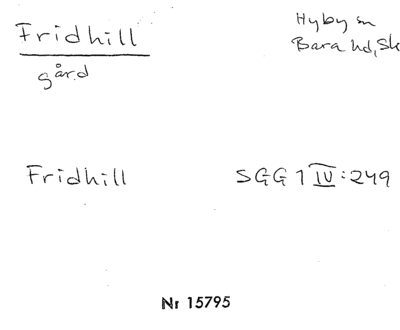 Fridhill
gård
Hyby sn
Bara hd, Sk
Fridhill
SGG 1 IV:249
Nr 15795